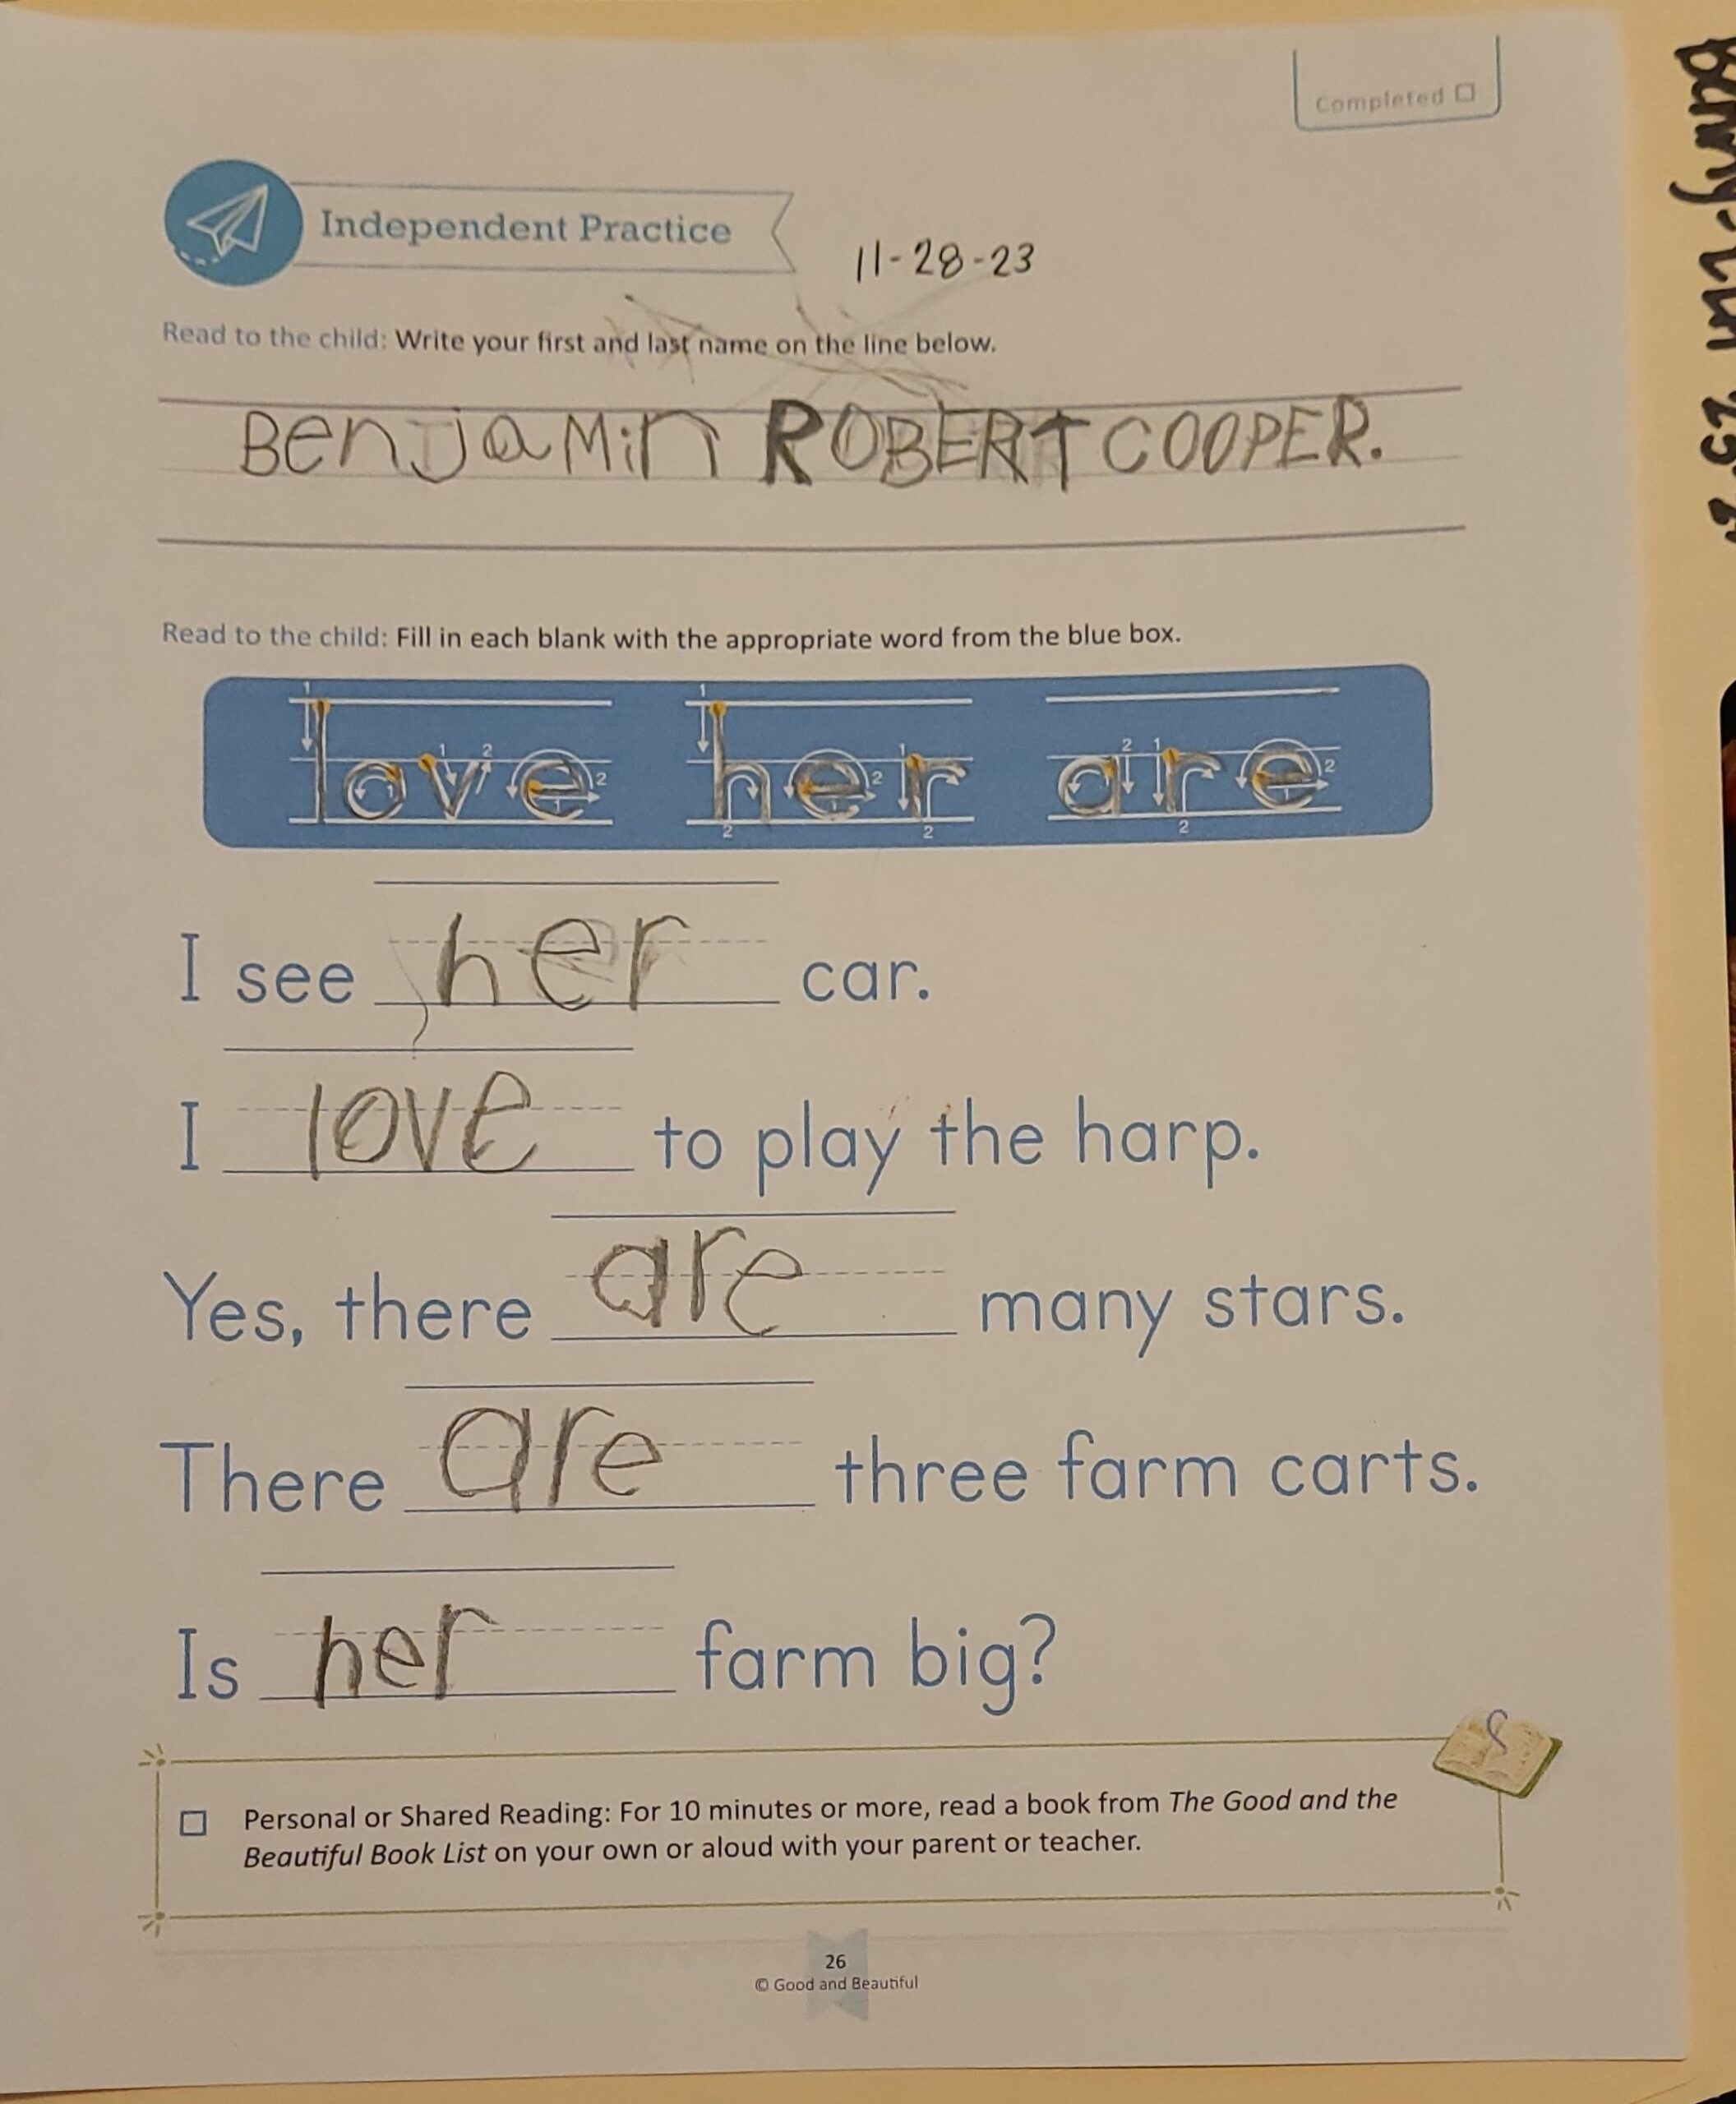 Completed
Independent Practice
11-28-23
Read to the child: Write your first and last name on the line below.
Benjamin ROBERT COOPER.
Read to the child: Fill in each blank with the appropriate word from the blue box.
love her are
I see her car.
I love to play the harp.
Yes, there are many stars.
There are three farm carts.
Is her farm big?
Personal or Shared Reading: For 10 minutes or more, read a book from The Good and the
Beautiful Book List on your own or aloud with your parent or teacher.
26
© Good and Beautiful